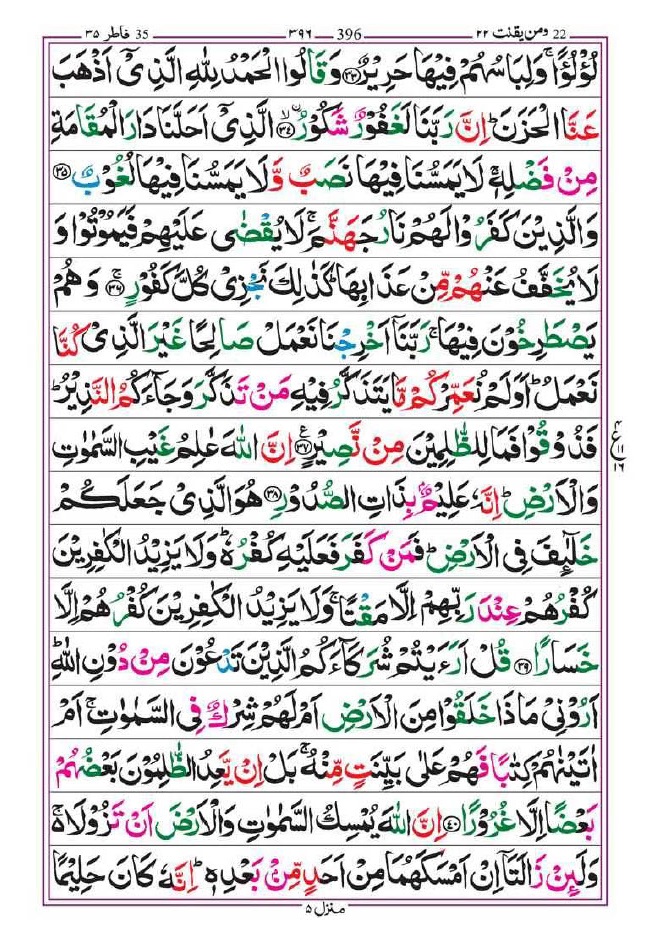 22 ومن يقنت ٢٢ 396 ٣٩٦ 35 فاطر ٣٥
لُؤْلُؤًاۚ وَلِبَاسُهُمْ فِيْهَا حَرِيْرٌ ﴿٣٣﴾ وَقَالُوا الْحَمْدُ لِلّٰهِ الَّذِيْۤ اَذْهَبَ
عَنَّا الْحَزَنَؕ اِنَّ رَبَّنَا لَغَفُوْرٌ شَكُوْرُۙ ﴿٣٤﴾ الَّذِيْۤ اَحَلَّنَا دَارَ الْمُقَامَةِ
مِنْ فَضْلِهٖۚ لَا يَمَسُّنَا فِيْهَا نَصَبٌ وَّلَا يَمَسُّنَا فِيْهَا لُغُوْبٌ ﴿٣٥﴾
وَالَّذِيْنَ كَفَرُوْا لَهُمْ نَارُ جَهَنَّمَۚ لَا يُقْضٰى عَلَيْهِمْ فَيَمُوْتُوْا وَ
لَا يُخَفَّفُ عَنْهُمْ مِّنْ عَذَابِهَاؕ كَذٰلِكَ نَجْزِيْ كُلَّ كَفُوْرٍۚ ﴿٣٦﴾ وَهُمْ
يَصْطَرِخُوْنَ فِيْهَاۚ رَبَّنَاۤ اَخْرِجْنَا نَعْمَلْ صَالِحًا غَيْرَ الَّذِيْ كُنَّا
نَعْمَلُؕ اَوَلَمْ نُعَمِّرْكُمْ مَّا يَتَذَكَّرُ فِيْهِ مَنْ تَذَكَّرَ وَجَآءَكُمُ النَّذِيْرُؕ
فَذُوْقُوْا فَمَا لِلظّٰلِمِيْنَ مِنْ نَّصِيْرٍ ﴿٣٧﴾ اِنَّ اللّٰهَ عٰلِمُ غَيْبِ السَّمٰوٰتِ
ع ٤ ١١ ١٦
وَالْاَرْضِؕ اِنَّهٗ عَلِيْمٌۢ بِذَاتِ الصُّدُوْرِ ﴿٣٨﴾ هُوَ الَّذِيْ جَعَلَكُمْ
خَلٰٓئِفَ فِي الْاَرْضِؕ فَمَنْ كَفَرَ فَعَلَيْهِ كُفْرُهٗؕ وَلَا يَزِيْدُ الْكٰفِرِيْنَ
كُفْرُهُمْ عِنْدَ رَبِّهِمْ اِلَّا مَقْتًاۚ وَلَا يَزِيْدُ الْكٰفِرِيْنَ كُفْرُهُمْ اِلَّا
خَسَارًا ﴿٣٩﴾ قُلْ اَرَءَيْتُمْ شُرَكَآءَكُمُ الَّذِيْنَ تَدْعُوْنَ مِنْ دُوْنِ اللّٰهِؕ
اَرُوْنِيْ مَاذَا خَلَقُوْا مِنَ الْاَرْضِ اَمْ لَهُمْ شِرْكٌ فِي السَّمٰوٰتِۚ اَمْ
اٰتَيْنٰهُمْ كِتٰبًا فَهُمْ عَلٰى بَيِّنَتٍ مِّنْهُۚ بَلْ اِنْ يَّعِدُ الظّٰلِمُوْنَ بَعْضُهُمْ
بَعْضًا اِلَّا غُرُوْرًا ﴿٤٠﴾ اِنَّ اللّٰهَ يُمْسِكُ السَّمٰوٰتِ وَالْاَرْضَ اَنْ تَزُوْلَا ۚ٥
وَلَئِنْ زَالَتَاۤ اِنْ اَمْسَكَهُمَا مِنْ اَحَدٍ مِّنْۢ بَعْدِهٖؕ اِنَّهٗ كَانَ حَلِيْمًا
منزل ٥